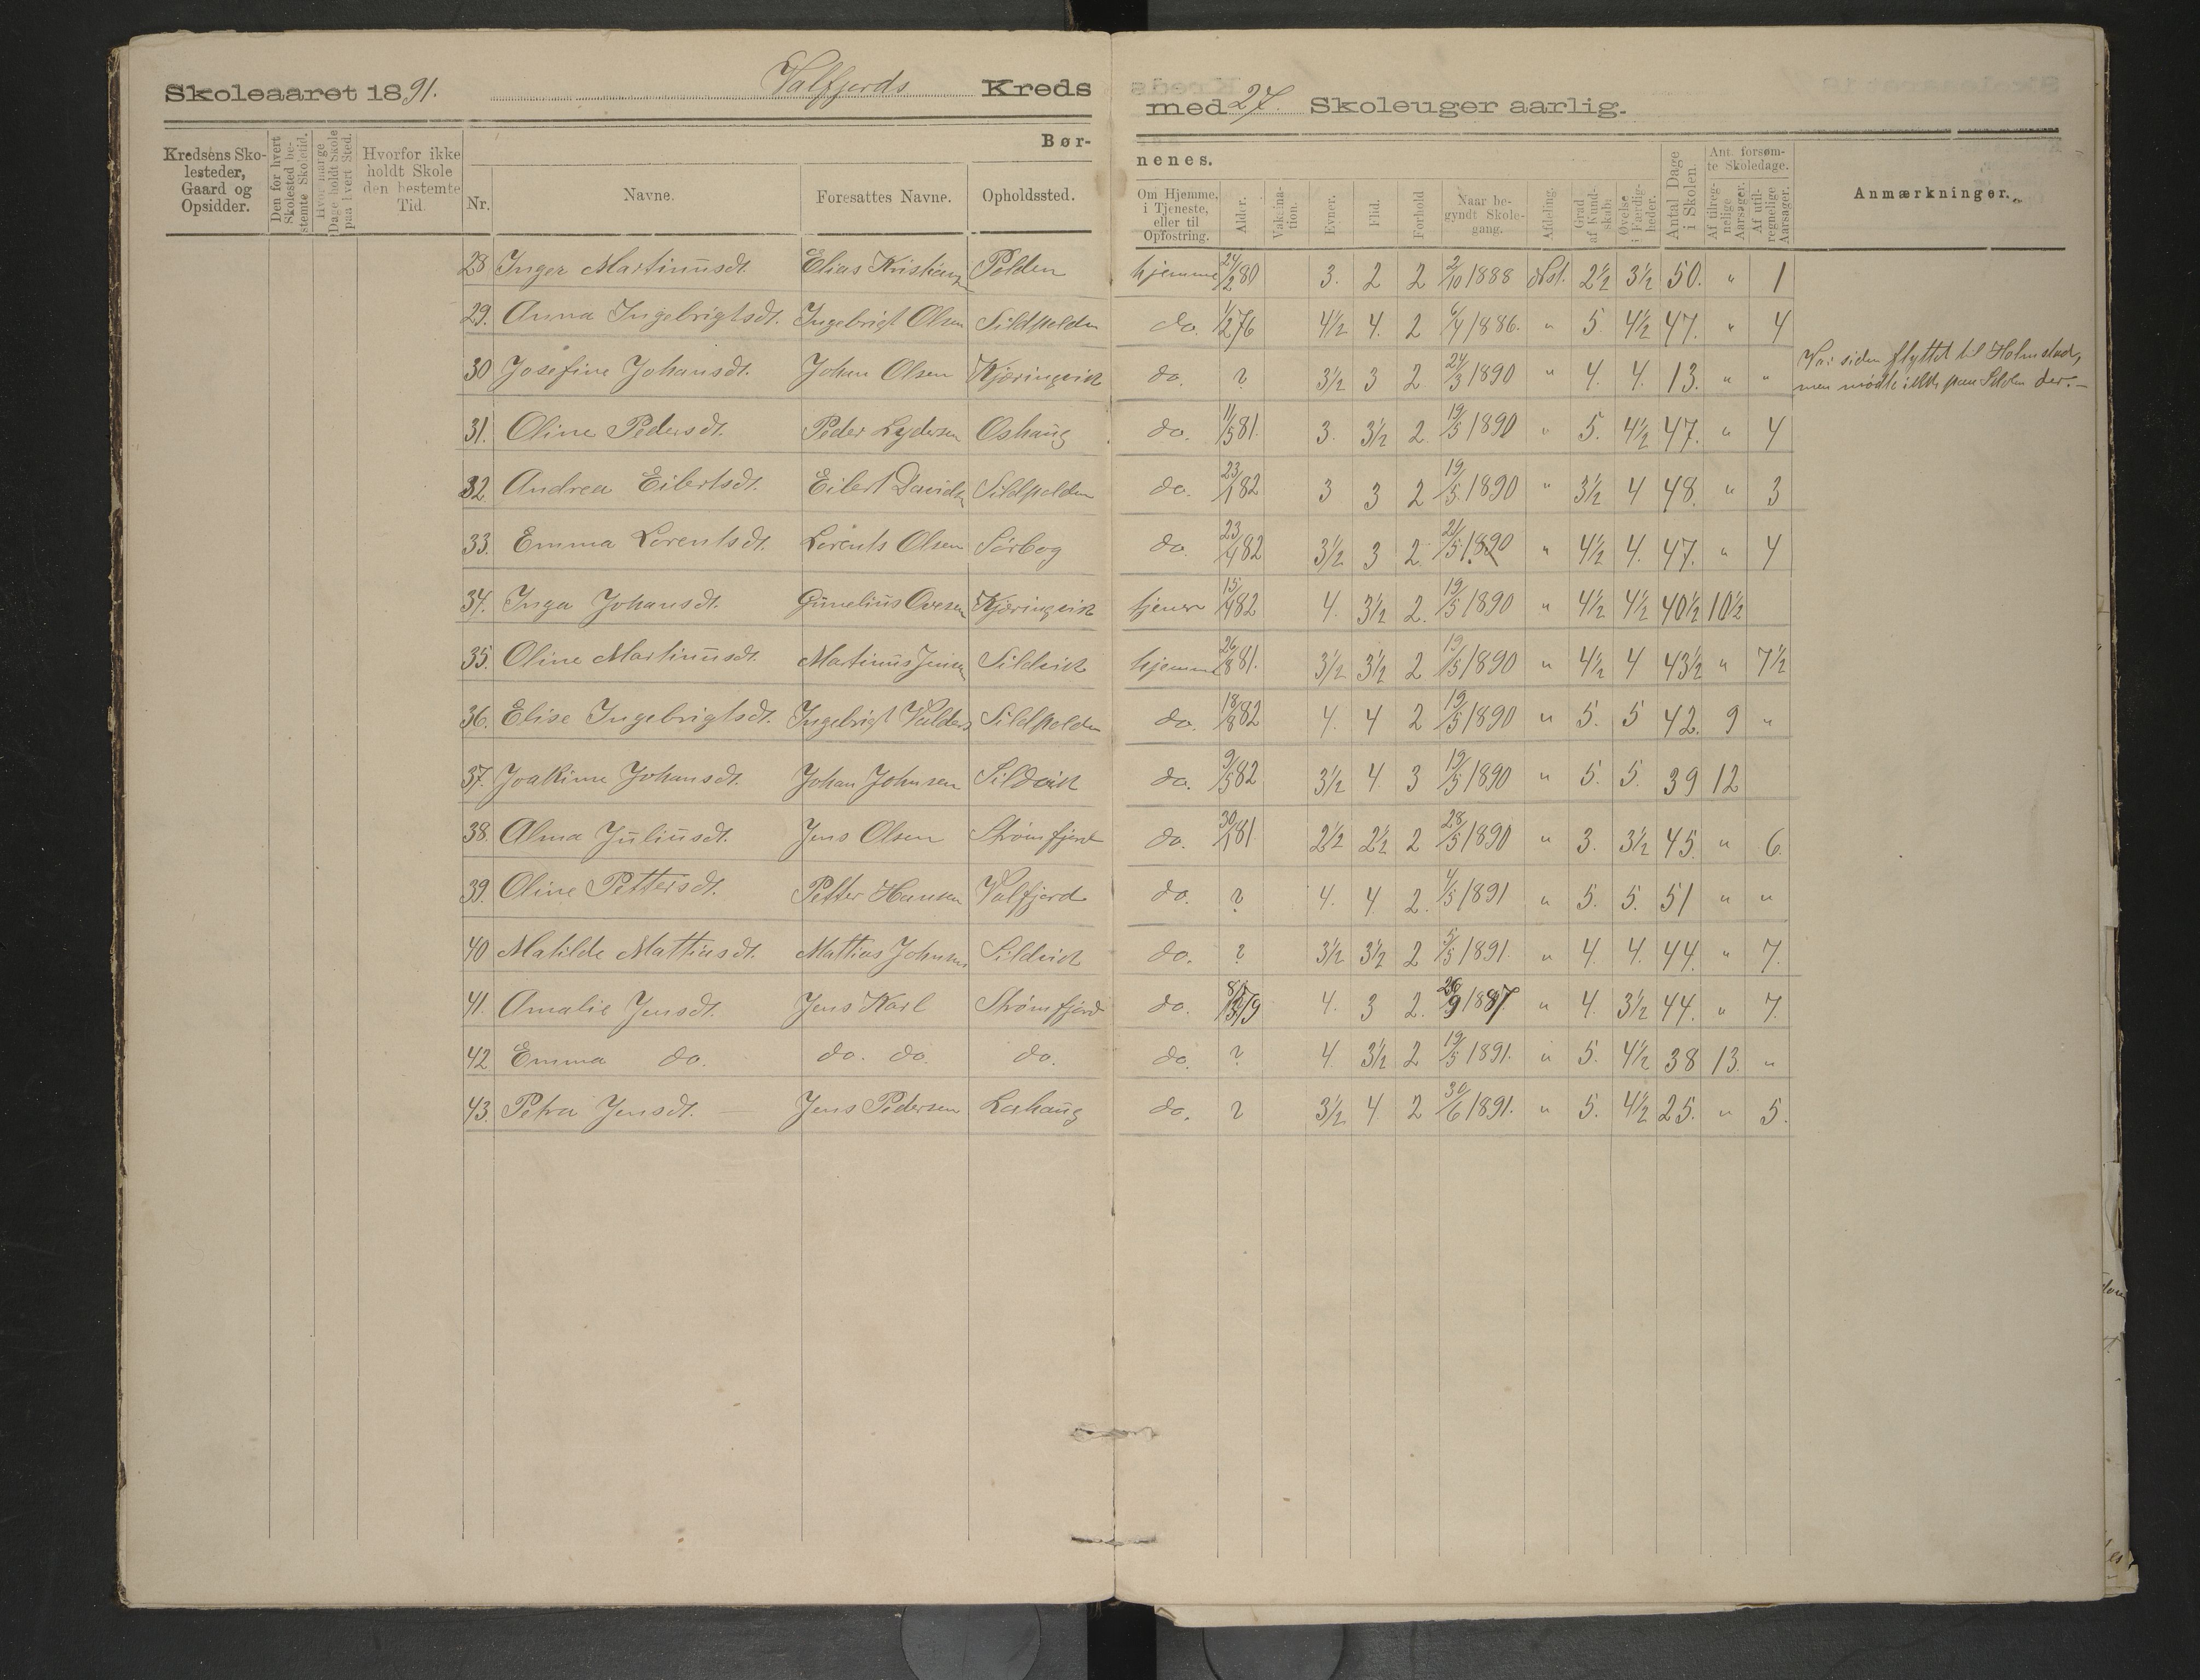 Skoleaaret 1891. Valfjords Kreds
med 27 Skoleuger aarlig.
Kredsens Sko-
lesteder,
Gaard og
Opsidder.
Den for hvert
Skolested be-
stemte Skoletid.
Hvor mange
Dage holdt Skole
paa hvert Sted.
Hvorfor ikke
holdt Skole
den bestemte
Tid.
Bør-
nenes.
Nr.
Navne.
Foresattes Navne.
Opholdssted.
Om Hjemme,
i Tjeneste,
eller til
Opfostring.
Alder.
Vakcina-
tion.
Evner.
Flid.
Forhold
Naar be-
gyndt Skole-
gang.
Afdeling.
Grad
af Kund-
skab.
Øvelse
i Færdig-
heder.
Antal Dage
i Skolen.
Ant. forsøm-
te Skoledage.
Af tilreg-
nelige
Aarsager.
Af util-
regnelige
Aarsager.
Anmærkninger.
28 Inger Martinusdt. Elias Kristians Polden hjemme 24/2 80 3. 2 2 2/10 1888 Nst. 2½ 3½ 50. " 1
29. Anna Ingebrigtsdt. Ingebrigt Olsen Sildpolden do. 1/2 76 4½ 4. 2 6/4 1886. " 5. 4½ 47. " 4
30 Josefine Johansdt. Johan Olsen Kjøringvik do. ? 3½ 3 2 24/3 1890 " 4. 4. 13. " " Var siden flyttet til Holmstad,
men mødte ikke paa Skolen der.-
31. Oline Pedersdt. Peder Lydersen Oshaug do. 11/5 81. 3. 3½ 2. 19/5 1890 " 5. 4½ 47. " 4
32 Andrea Eilertsdt. Eilert Davids Sildpolden do. 23/1 82 3 3 2 19/5 1890 " 3½ 4 48. " 3
33. Emma Lorentsdt. Lorents Olsen Sørbog do. 23/4 82 3½ 3 2. 21/5 1890 " 4½ 4. 47. " 4
34. Inga Johansdt. Gunelius Ovesen Kjøringvik tjener 15/4 82 4. 3½ 2. 19/5 1890 " 4½ 4½ 40½ 10½
35. Oline Martinusdt. Martinus Jensen Sildvik hjemme 26/8 81. 3½ 3½ 2 19/5 1890 " 4½ 4 43½ " 7½
36. Elise Ingebrigtsdt. Ingebrigt Valders Sildpolden do. 18/8 82 4. 4 2 19/5 1890 " 5. 5 42. 9 "
37. Joakime Johansdt. Johan Johnsen Sildvik do. 9/5 82 3½ 4. 3 19/5 1890 " 5. 5. 39 12
38. Alma Juliusdt. Jens Olsen Strømfjord do. 30/1 81 2½ 2½ 2 28/5 1890 " 3. 3½ 45. " 6.
39. Oline Pettersdt. Petter Hansen Valfjord do. ? 4. 4. 2. 4/5 1891 " 5. 5. 51 " "
40 Matilde Mattiasdt. Mattias Johnsen Sildvik do. ? 3½ 3½ 2 5/5 1891. " 4. 4. 44. " 7.
41. Amalie Jensdt. Jens Karl Strømfjord do. 79 4. 3 2. 26/9 1887 " 4. 3½ 44. " 7.
42 Emma do. do. do. do. do. ? 4. 3½ 2 19/5 1891. " 5. 4½ 38 13. "
43. Petra Jensdt. Jens Pedersen Laxhaug do. ? 3½ 4 2 30/6 1891. " 5. 4½ 25. " 5.